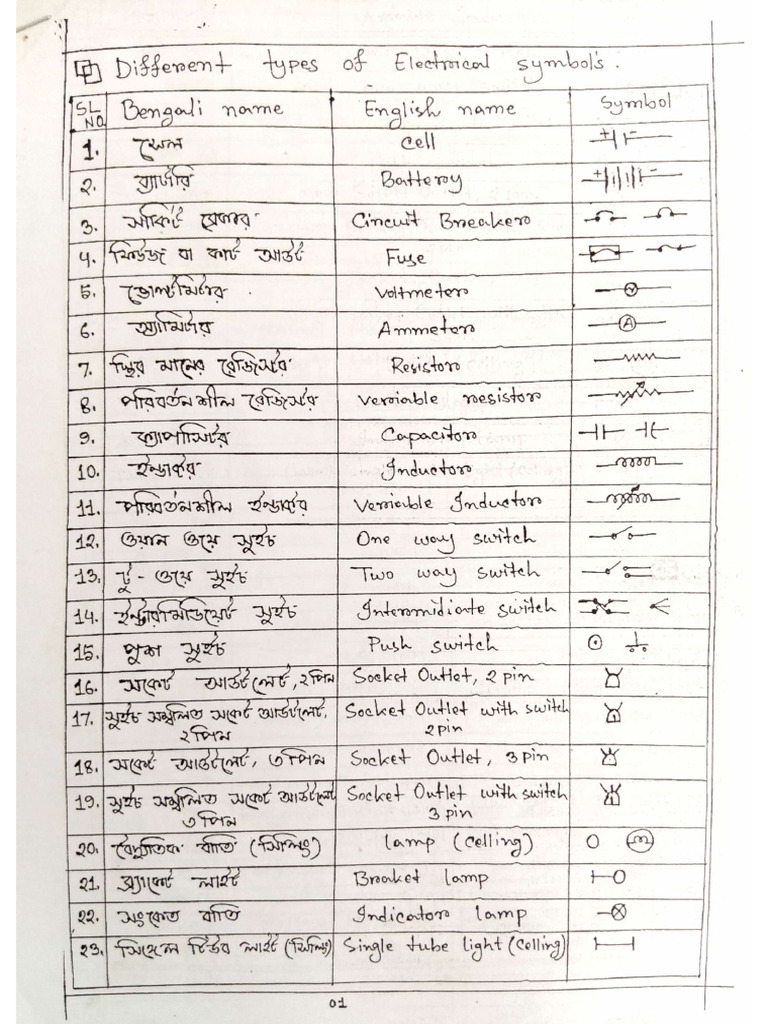 Different types of Electrical symbols.
SL NO. Bengali name English name Symbol
1. সেল Cell
2. ব্যাটারি Battery
3. সার্কিট ব্রেকার Circuit Breaker
4. ফিউজ বা কাট আউট Fuse
5. ভোল্টমিটার Voltmeter V
6. অ্যামিটার Ammeter A
7. স্থির মানের রেজিস্টর Resistor
8. পরিবর্তনশীল রেজিস্টর veriable resistor
9. ক্যাপাসিটর Capacitor
10. ইন্ডাক্টর Inductor
11. পরিবর্তনশীল ইন্ডাক্টর Veriable Inductor
12. ওয়ান ওয়ে সুইচ One way switch
13. টু - ওয়ে সুইচ Two way switch
14. ইন্টারমিডিয়েট সুইচ Intermidiate switch
15. পুশ সুইচ Push switch
16. সকেট আউটলেট, ২পিন Socket Outlet, 2 pin
17. সুইচ সম্বলিত সকেট আউটলেট, Socket Outlet with switch
২পিন 2pin
18. সকেট আউটলেট, ৩পিন Socket Outlet, 3 pin
19. সুইচ সম্বলিত সকেট আউটলেট Socket Outlet with switch
৩পিন 3 pin
20. বৈদ্যুতিক বাতি (সিলিং) lamp (Celling)
21. ব্র্যাকেট লাইট Braket lamp
22. সংকেত বাতি Indicator lamp
23. সিঙ্গেল টিউব লাইট (সিলিং) Single tube light (Celling)
01